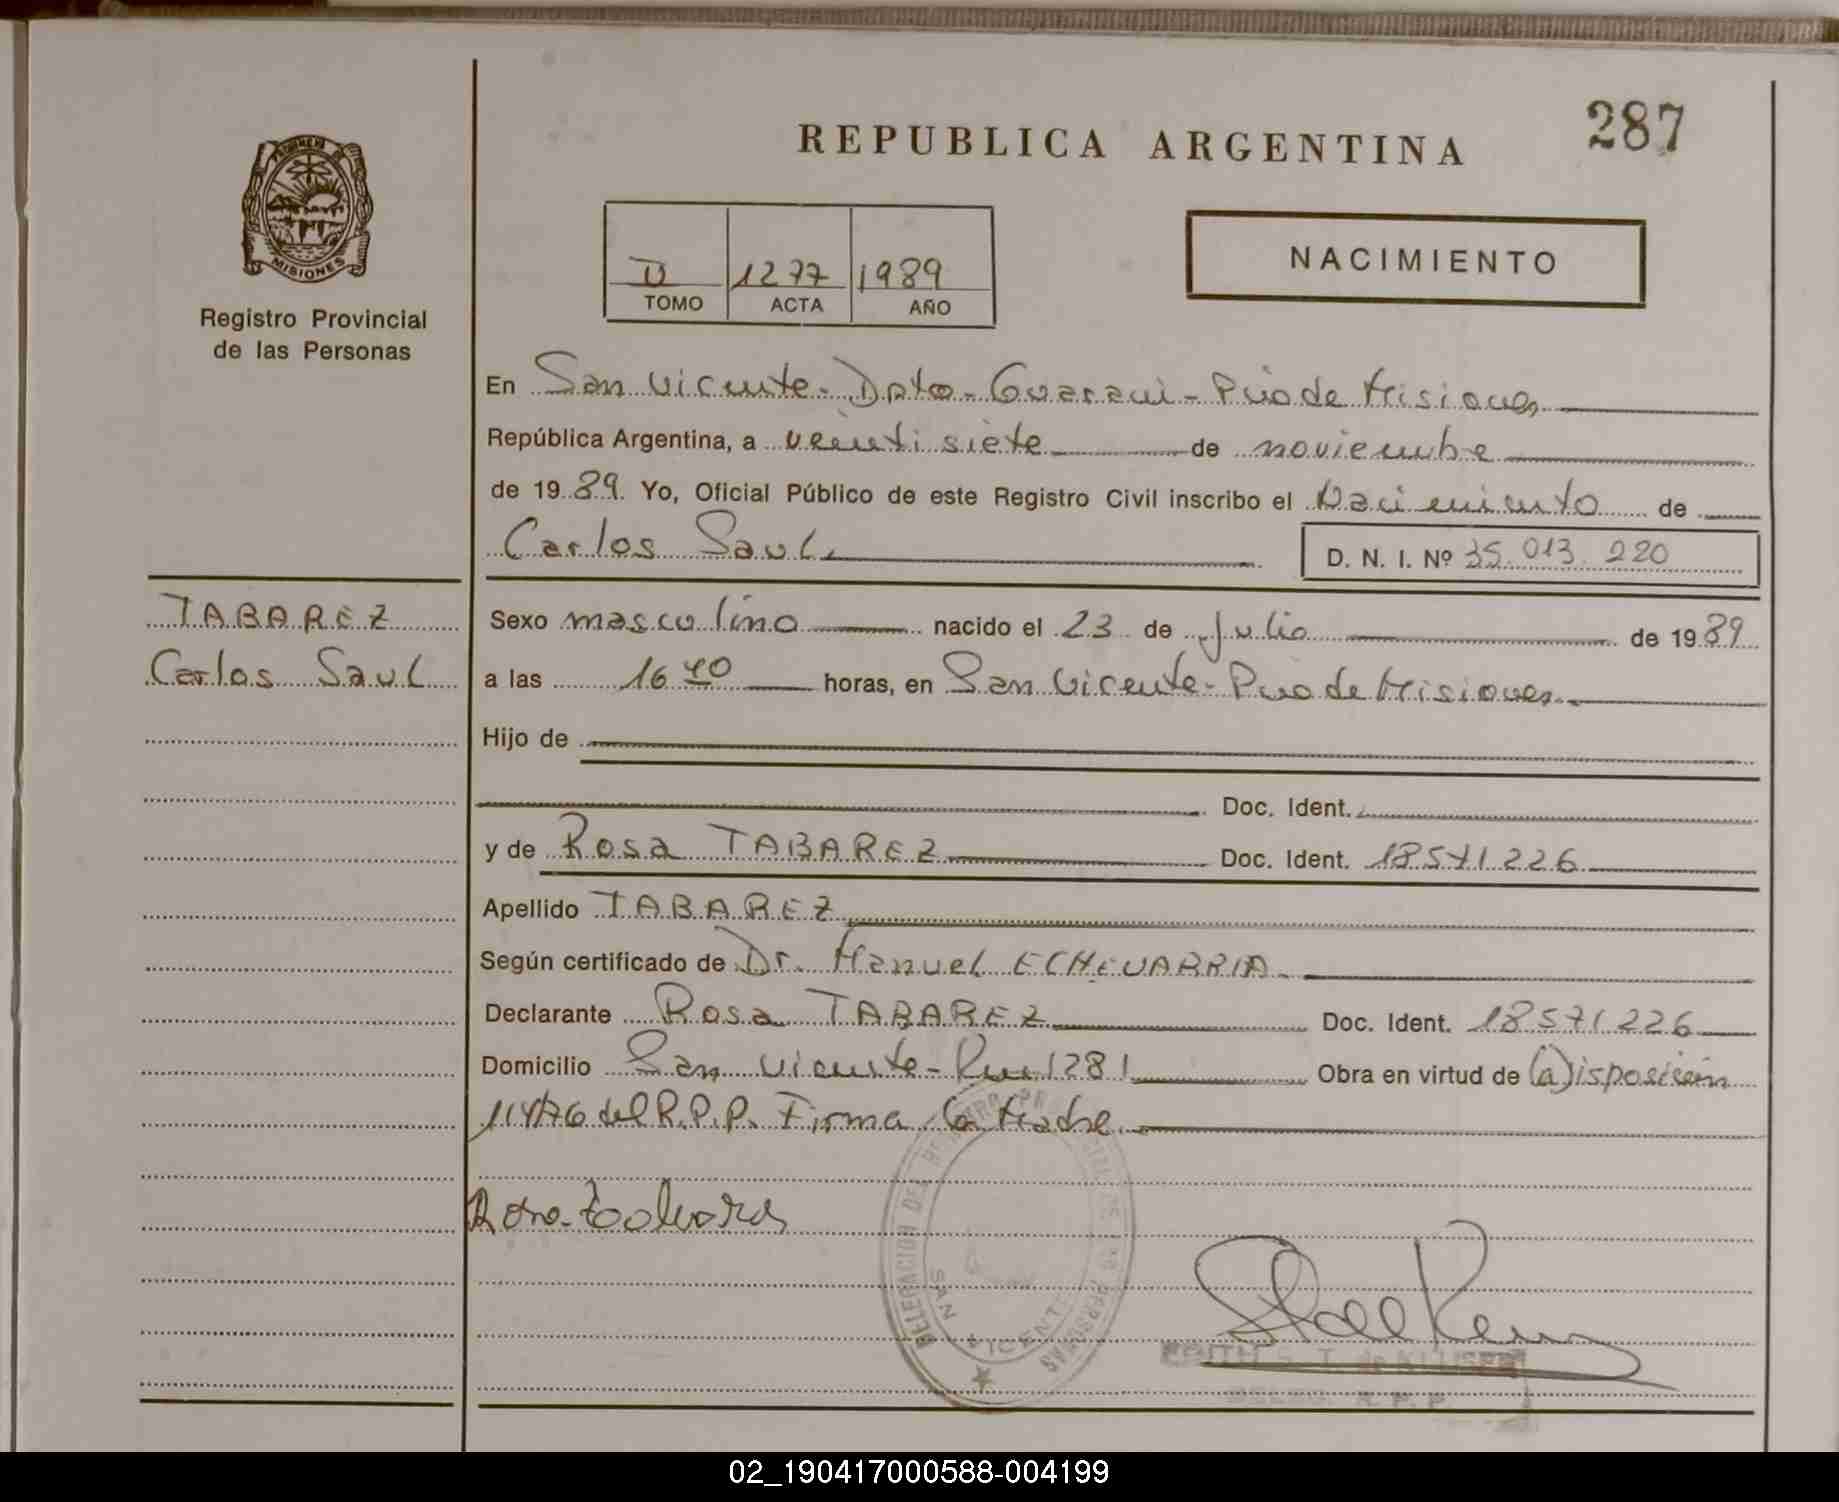 287
REPUBLICA ARGENTINA
PROVINCIA DE
MISIONES
Registro Provincial
de las Personas
1277 1989
TOMO ACTA AÑO
NACIMIENTO
En San Vicente - Dpto - Guarani - Pcia de Misiones
República Argentina, a veintisiete de noviembre
de 1989. Yo, Oficial Público de este Registro Civil inscribo el Nacimiento de
Carlos Saul.
D. N. I. Nº 35.013.220
TABAREZ
Carlos Saul
Sexo masculino nacido el 23 de Julio de 1989
a las 16 40 horas, en San Vicente - Pcia de Misiones
Hijo de
Doc. Ident.
y de Rosa TABAREZ Doc. Ident. 18571226
Apellido TABAREZ
Según certificado de Dr. Manuel ECHEVARRIA
Declarante Rosa TABAREZ Doc. Ident. 18571226
Domicilio San Vicente - Km 1281 Obra en virtud de (a) isposición
114/76 del R.P.P. Firma la Madre.
DELEGACION DEL REGISTRO PROVINCIAL DE LAS PERSONAS
SAN VICENTE
EDITH S. T. de
DELEG. R. P. P.
02_190417000588-004199